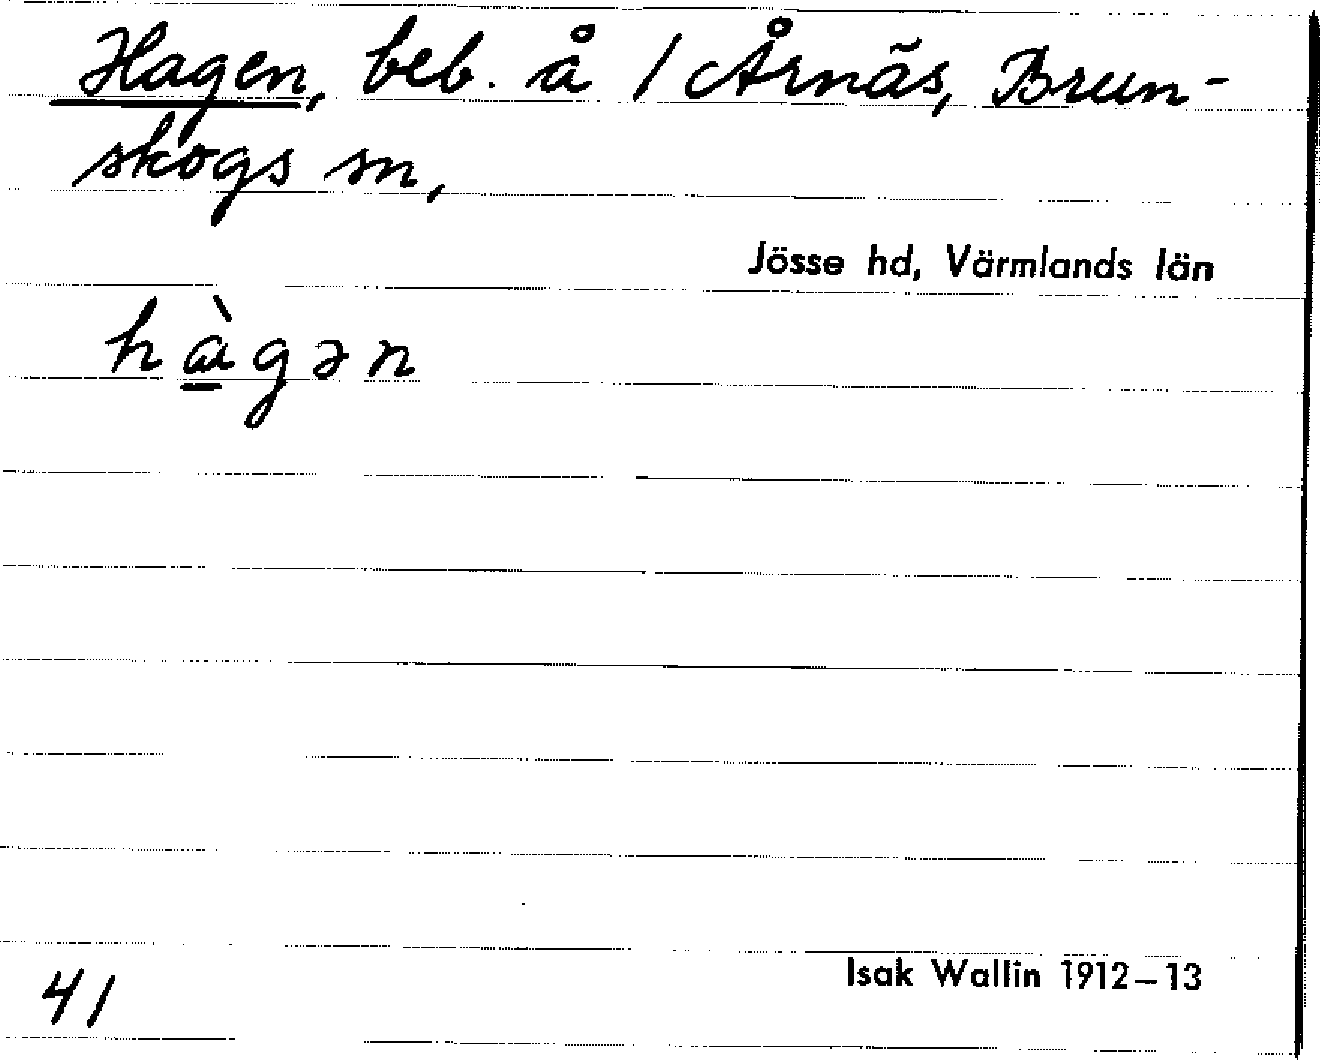 Hagen, beb. å 1 Årnäs, Brun-
skogs sn,
Jösse hd, Värmlands län
hàgən
41
Isak Wallin 1912–13